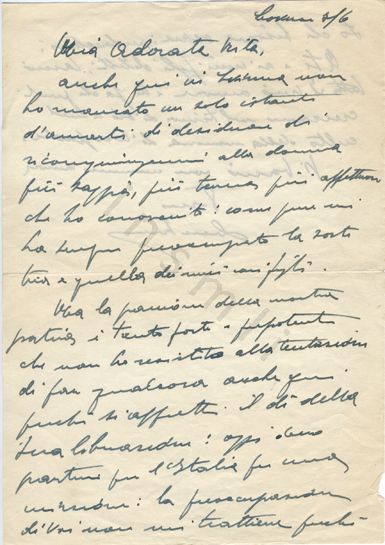 8/6
Mia Adorata Rita,
anche qui in Lucania non
ho mancato un solo istante
d'amarti di desiderare di
ricongiungermi alla donna
più saggia, più tenera più affettuosa
che ho conosciuto: come pure mi
ha sempre preoccupato la sorte
tua e quella dei miei cari figli.
Ma la passione della nostra
patria è tanto forte e prepotente
che non ho resistito alla tentazione
di far qualcosa anche qui
perché si affretti il dì della
sua liberazione: oggi devo
partire per l'Italia per una
missione: la preoccupazione
di voi non mi trattiene perché